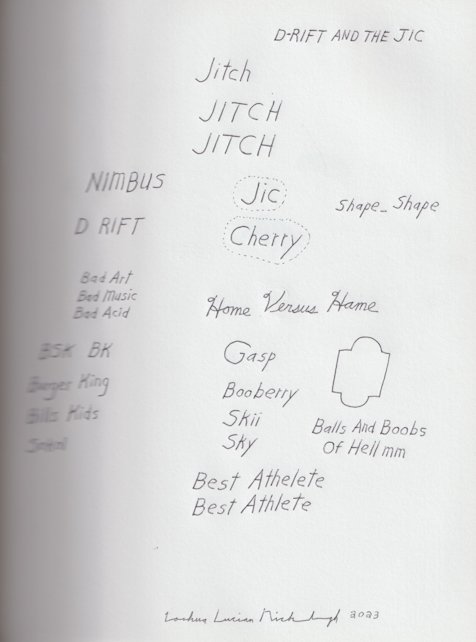 D-RIFT AND THE JIC
Jitch
JITCH
JITCH
NIMBUS
Jic
Shape_ Shape
D RIFT
Cherry
Bad Art
Bad Music
Bad Acid
Home Versus Hame
BSK BK
Gasp
Burger King
Booberry
Bills Kids
Skii
Balls And Boobs
Sky
Of Hell mm
Best Athelete
Best Athlete
Lucian
2023